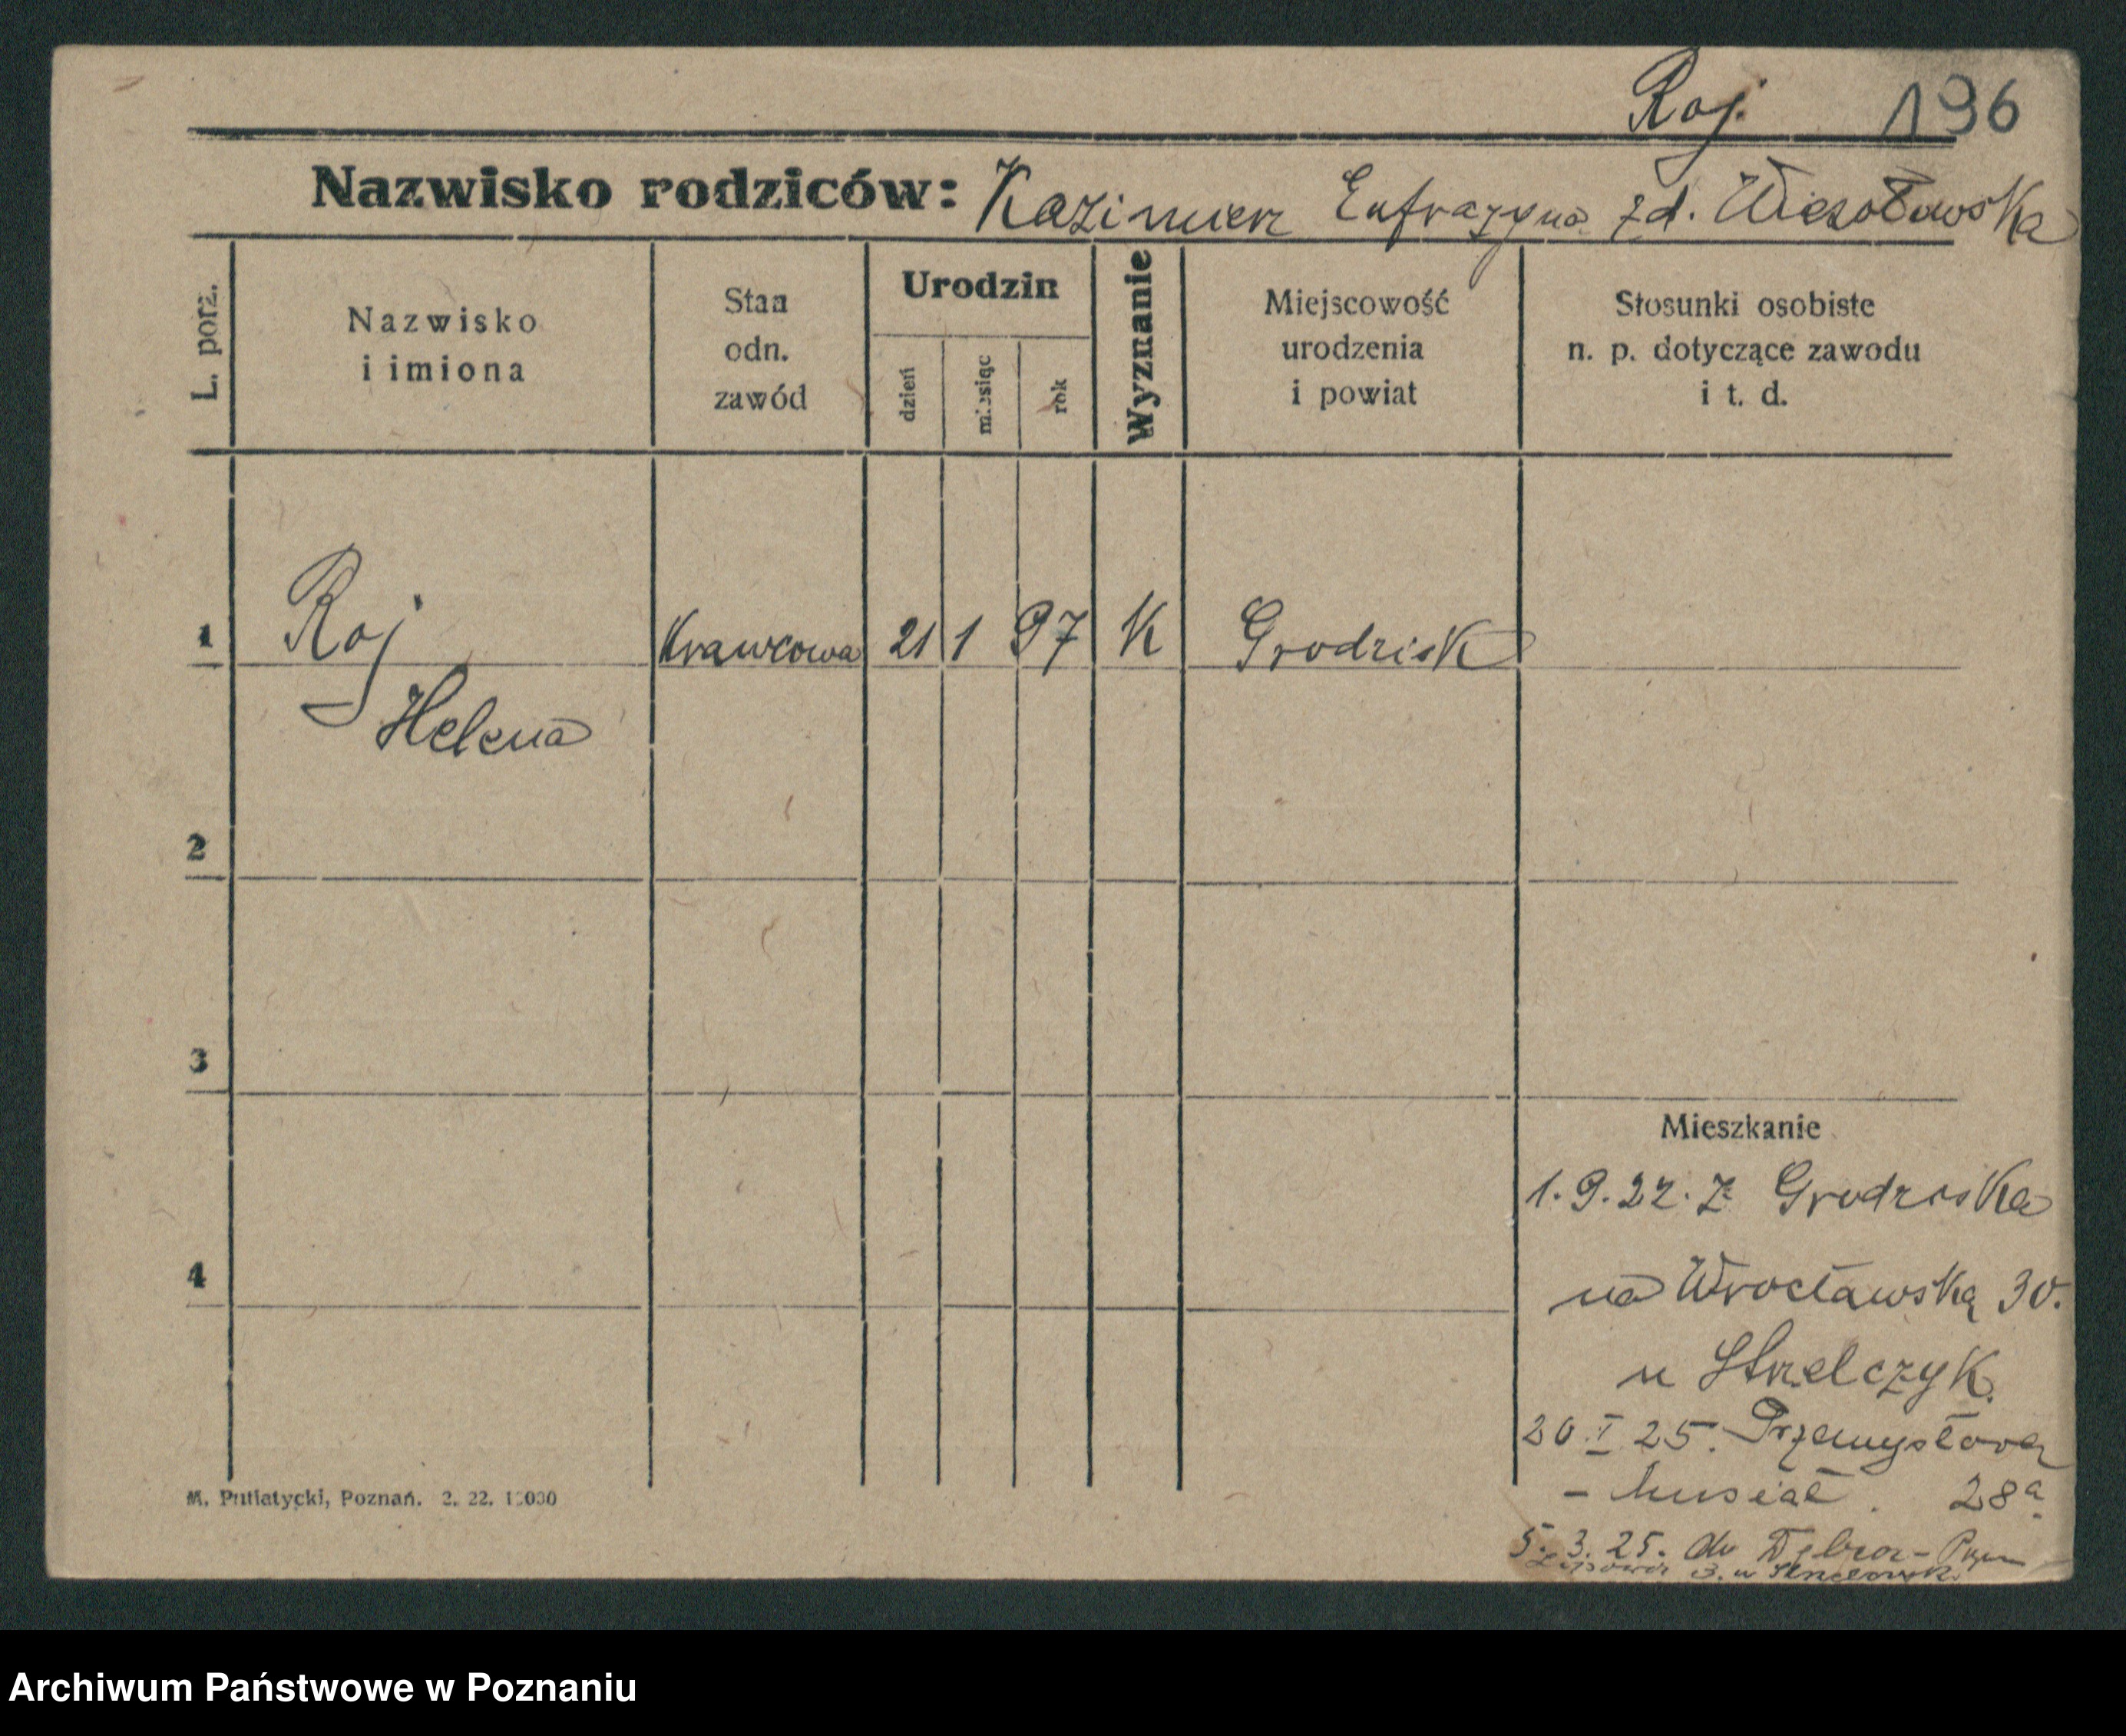 Roj. 196
Nazwisko rodziców: Kazimierz Eufrazyna zd. Wiesołowska
L. porz.
Nazwisko
i imiona
Stan
odn.
zawód
Urodzin
dzień
miesiąc
rok
Wyznanie
Miejscowość
urodzenia
i powiat
Stosunki osobiste
n. p. dotyczące zawodu
i t. d.
1 Roj Krawcowa 21 1 97 K Grodzisk
Helena
2
3
Mieszkanie
1.9.22. Z Grodziska
4
na Wrocławską 30.
u Strzelczyk.
20.I 25. Przemysłowa
- Musiał. 28a
M. Putiatycki, Poznań. 2. 22. 10000
5. 3. 25. do
3. u
Archiwum Państwowe w Poznaniu